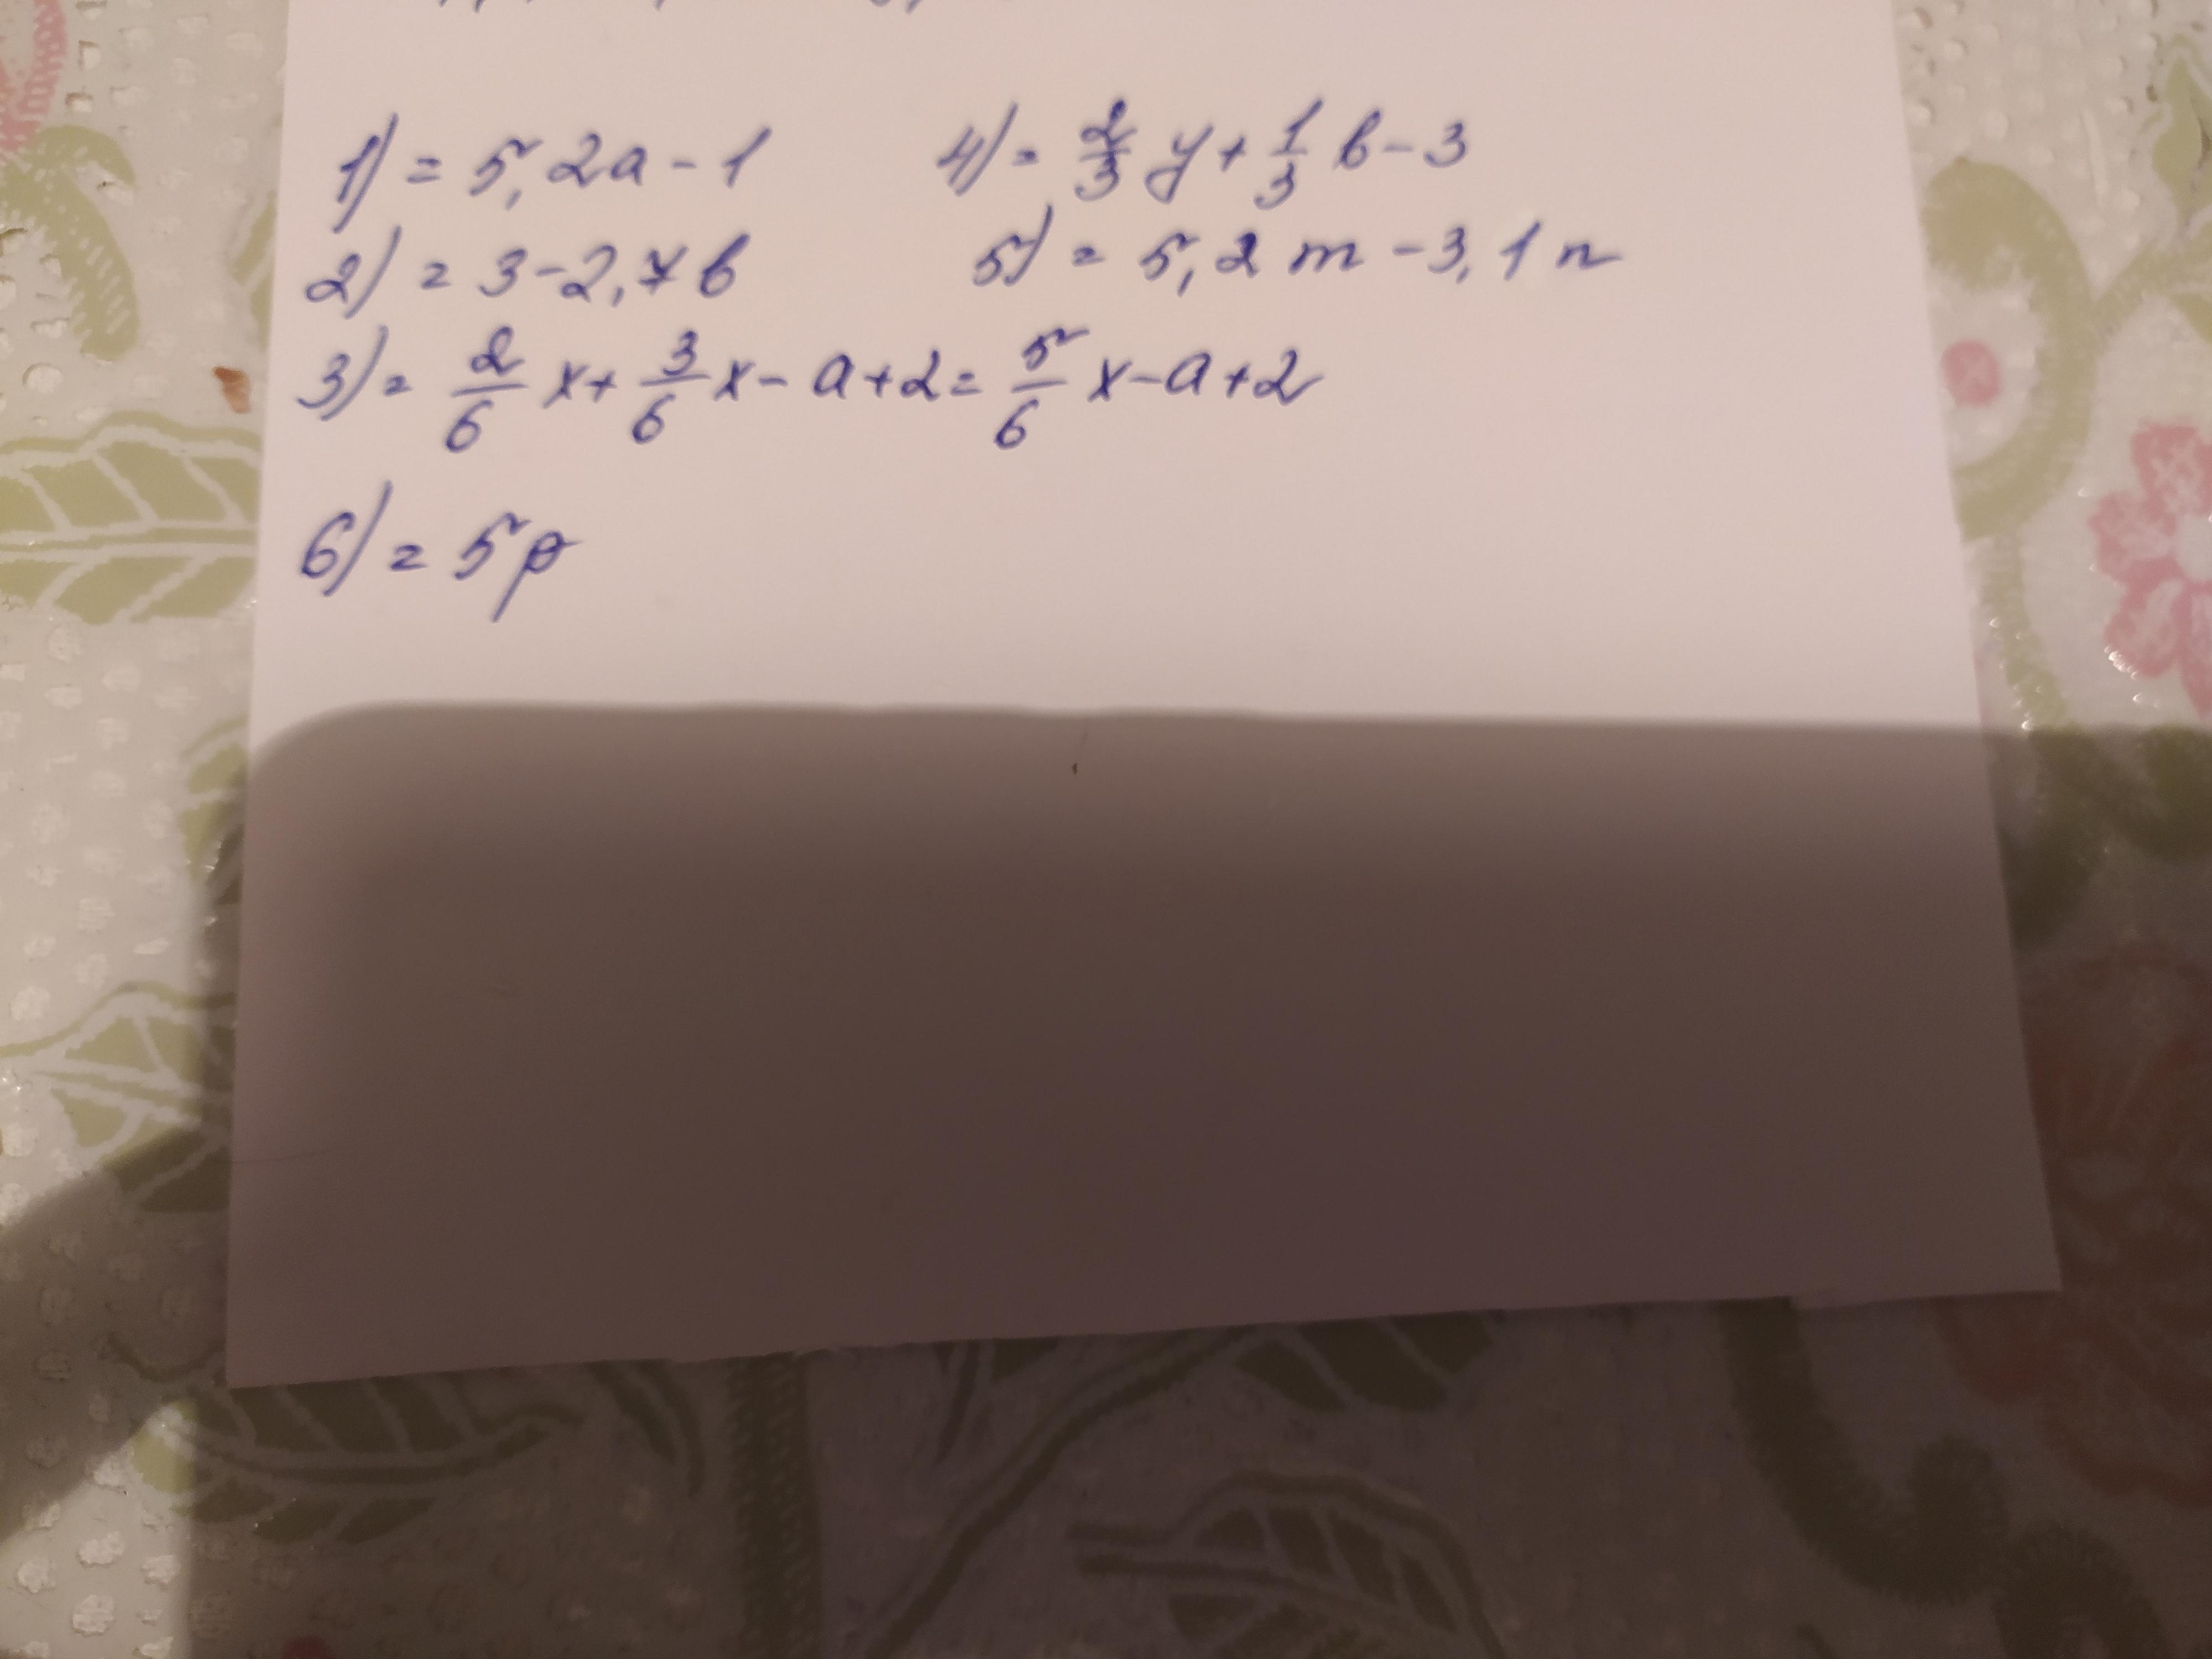 1) = 5,2a - 1
2) = 3 - 2,7b
3) = 2/6 x + 3/6 x - a + 2 = 5/6 x - a + 2
4) = 2/3 y + 1/3 b - 3
5) = 5,2 m - 3,1 n
6) = 5p